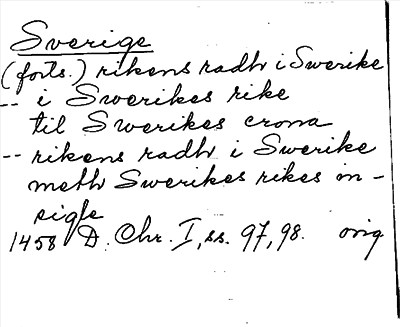 Sverige
(forts.) rikens radh i Swerike
-- i Swerikes rike
til Swerikes crona
-- rikens radh i Swerike
meth Swerikes rikes in-
sigle
1458 D. Chr. I, ss. 97, 98. orig